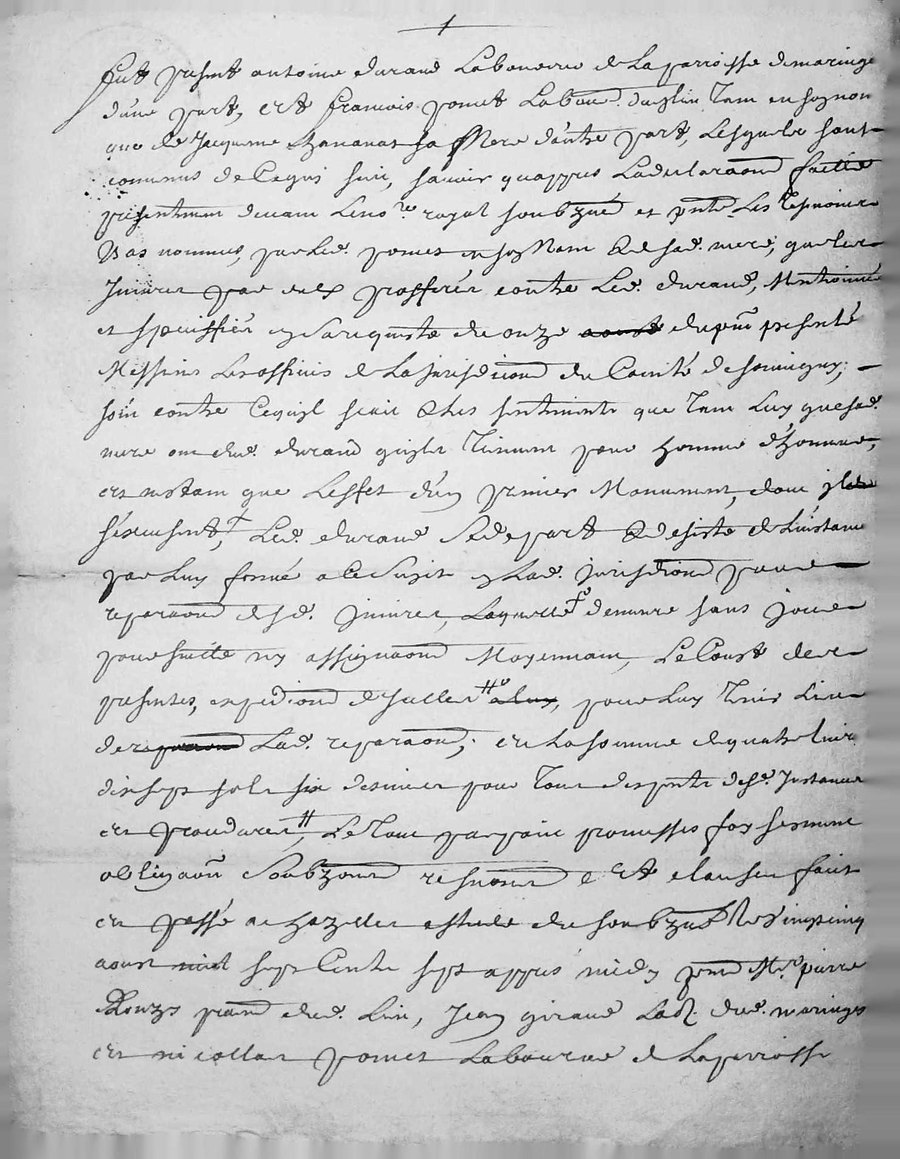 1
fut present antoine durand Laboureur de La parroisse de maringe
d'une part, Et francois ponet Labour. dud. lin Tam en son nom
que de Jacqueme Chananat sa Mere d'autre part, Lesquels sont
convenus de Cequi suit, scavoir quappres La declaraond faitte
presentement devant Le no.re royal soubzne et pnts Les Tesmoins
Bas nommes, par Led. ponet en son Nom & de sad. mere, que les
Injures par eux profferes contre Led. durand, Mentionnés
et speciffiés en sa requeste du onze aoust du pnt presenté
Messieurs Les officiers de La jurisdiciond du Comté de
soin contre Cequil scait & les sentiments que Tam Luy que sad.
mere ont dud. durand quils Tiennent pour homme d'honneur,
et nestam que L'effet d'un premier Mouvement, dont ils
s'excusent, Led. durand Se depart & desiste de L'instance
par Luy formé a ce Sujet en Lad. jurisdiciond pour
reparaond desd. injures, Laquelle demeure sans
poursuitte ny assignaond Moyennant, Le Coust des
presentes, expediond d'icelles a luy, pour Luy Tenir Lieu
de reparaond Lad. reparaond, et La somme de quatre livres
dix sept sols six deniers pour Tous despents de sd. Instance
et procedures, Le Tout par paix promesses foy serment
obligaon Soubzmis renonon & Et clauses fait
et passé a chazelles estude du soubzne Le vingt cinq
aoust mil sept Cents sept appres midy pnts M.re pierre
pratd dud. Lieu, Jean giraud Lab. dud. maringes
et nicollas ponet Laboureur de La parroisse